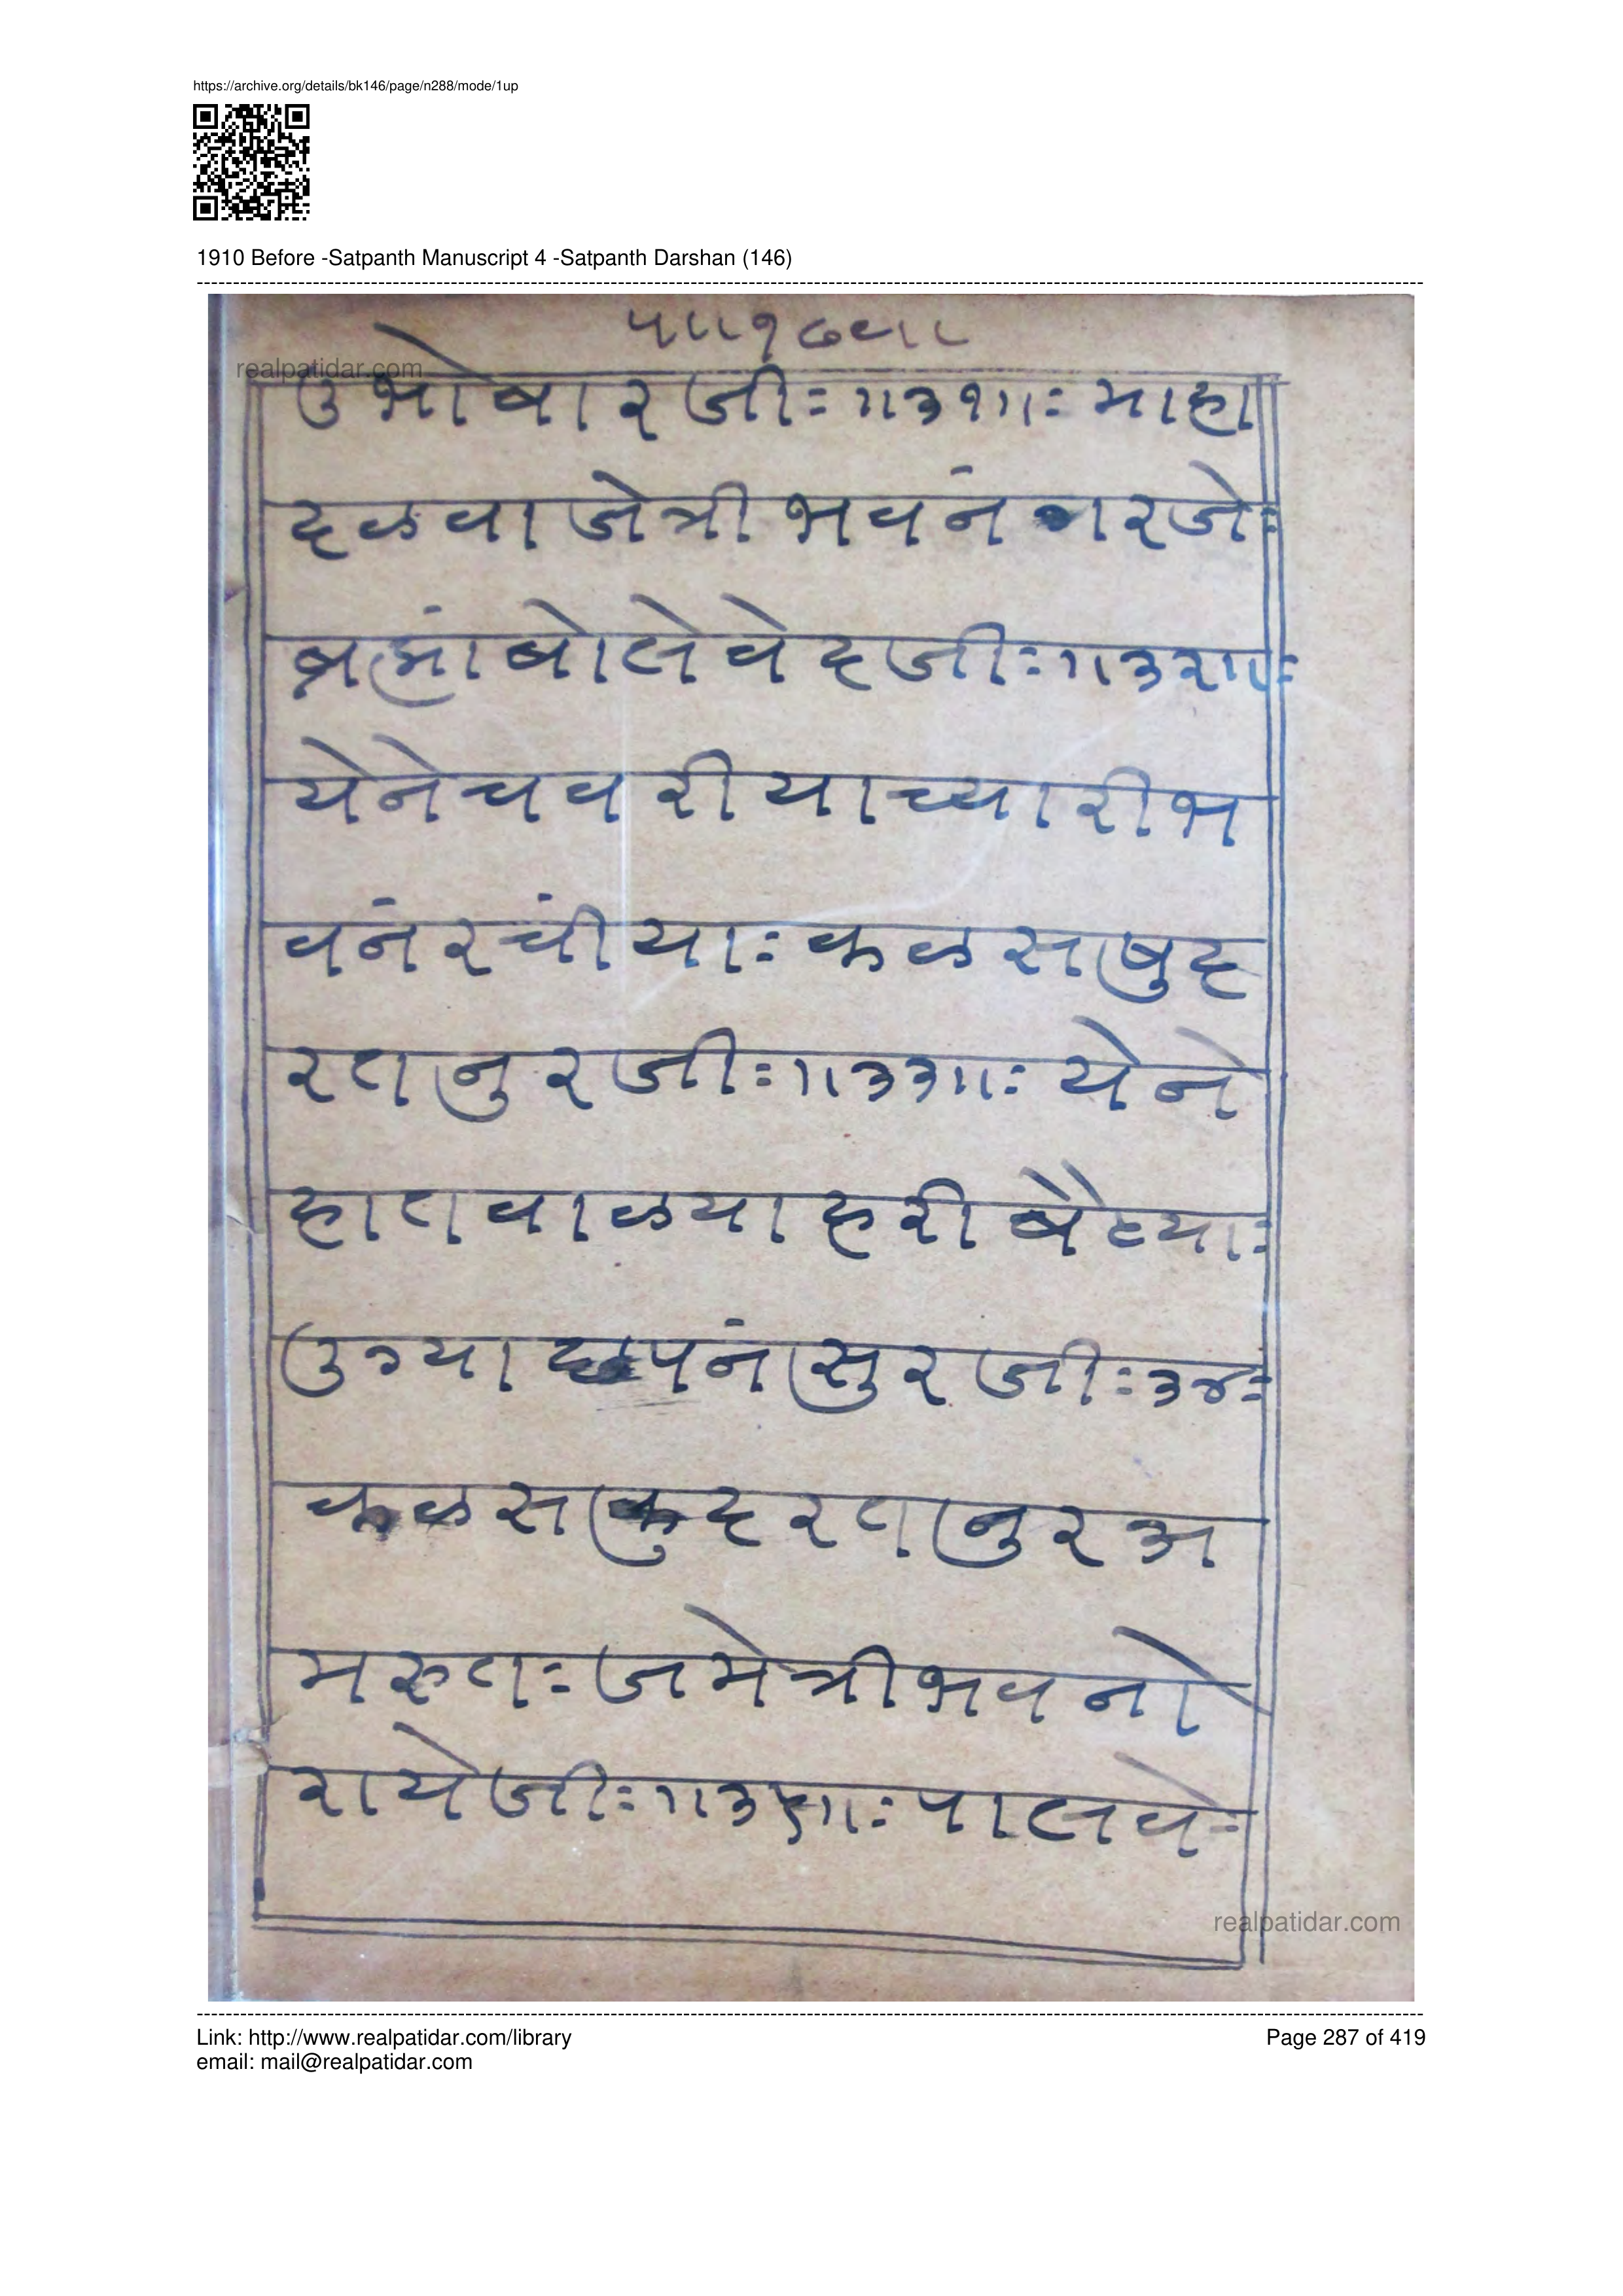 https://archive.org/details/bk146/page/n288/mode/1up
1910 Before -Satpanth Manuscript 4 -Satpanth Darshan (146)
realpatidar.com
उभोबारजी:॥३१॥: माहा
दळवाजेत्रीभवनं गरजे:
ब्रह्मांबोलेवेदजी:॥३२॥:
येनेचवरीयाच्यारीभ
वनंरचीया:कळसषुद
रतनुरजी:॥३३॥: येने
हातवाळयाहरीबैठया:
उग्याछपनंसुरजी:३४:
कळसकुदरतनुरअ
मरुत:जमेत्रीभवनो
रायेजी:॥३५॥:पालवे:
realpatidar.com
Link: http://www.realpatidar.com/library
email: mail@realpatidar.com
Page 287 of 419